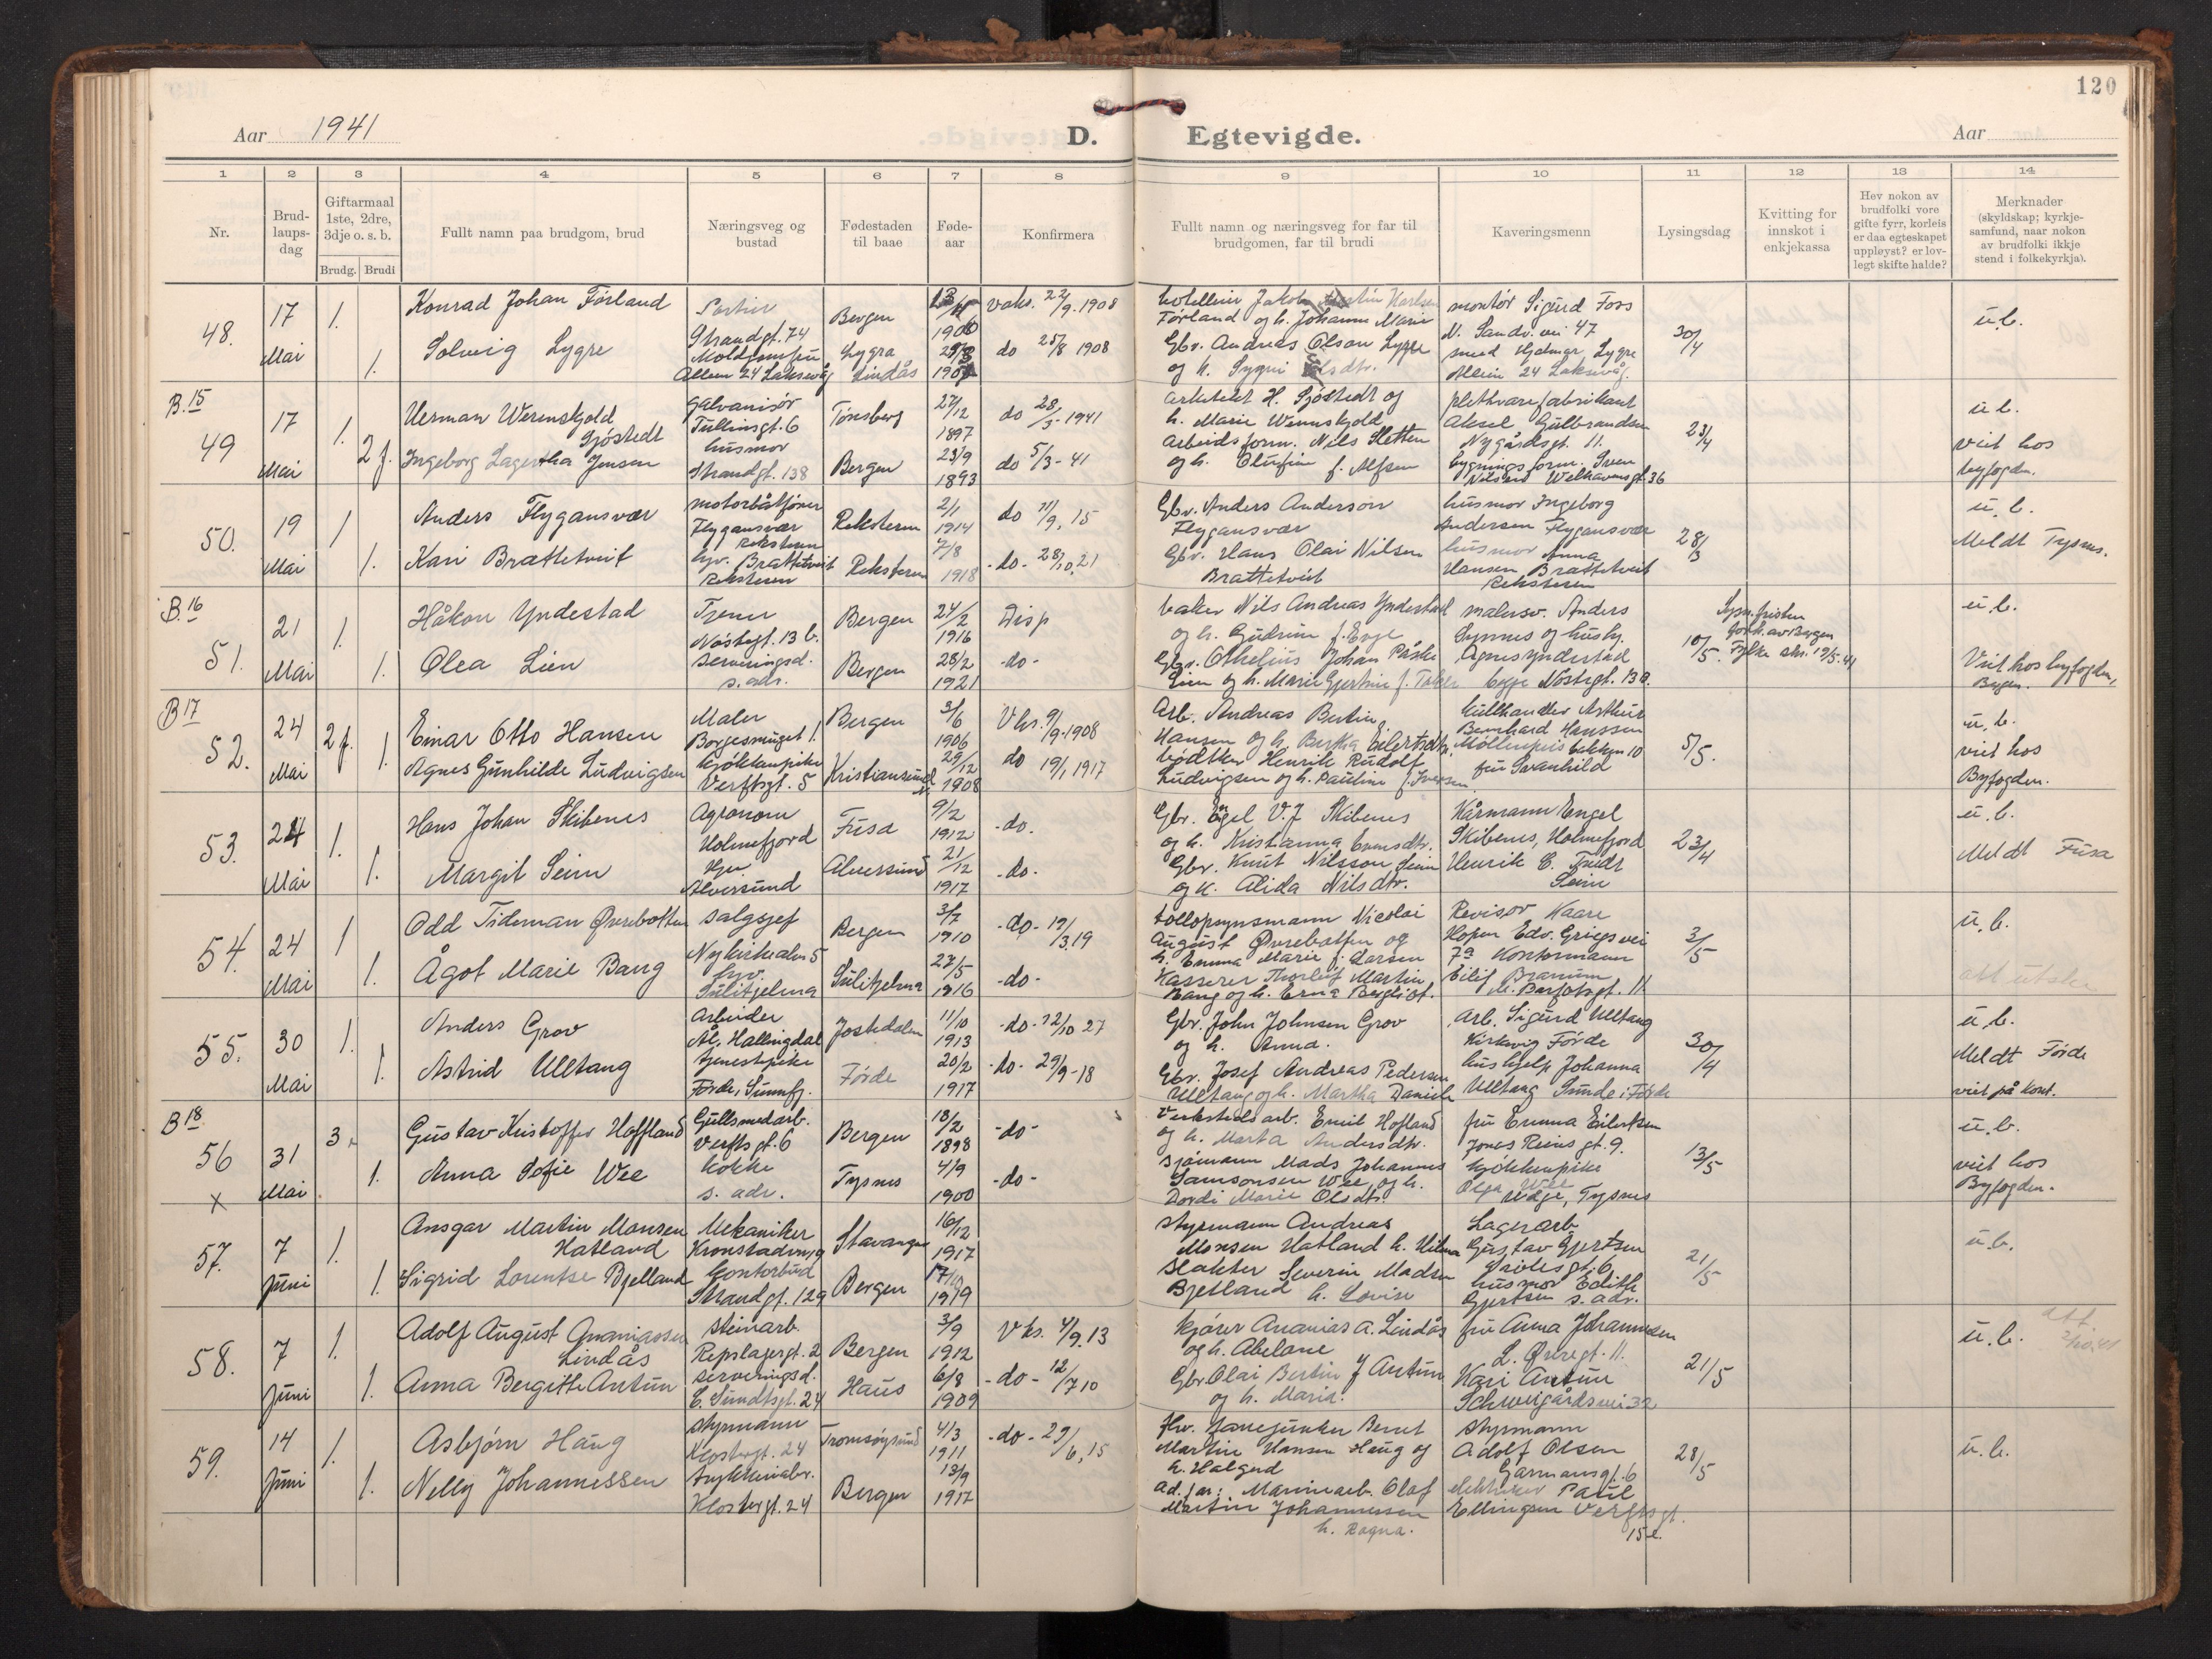 120
Aar 1941
D.
Egtevigde.
Aar
1 2 3 4 5 6 7 8 9 10 11 12 13 14
Nr.
Brud-
laups-
dag
Giftarmaal
1ste, 2dre,
3dje o. s. b.
Brudg. Brudi
Fullt namn paa brudgom, brud
Næringsveg og
bustad
Fødestaden
til baae
Føde-
aar
Konfirmera
Fullt namn og næringsveg for far til
brudgomen, far til brudi
Kaveringsmenn
Lysingsdag
Kvitting for
innskot i
enkjekassa
Hev nokon av
brudfolki vore
gifte fyrr, korleis
er daa egteskapet
uppløyst? er lov-
legt skifte halde?
Merknader
(skyldskap; kyrkje-
samfund, naar nokon
av brudfolki ikkje
stend i folkekyrkja).
48.
17
Mai
1.
1.
Konrad Johan Førland
Solveig Lygre
Portier
Strandgt. 74
Alleen 24 Laksevåg
Bergen
Lygra
Lindås
vaks. 22/9. 1908
do 25/8 1908
Førland og h. Johanne Marie
Gbr. Andreas Olson Lygre
montør Sigurd Foss
N. Sandv. vei 47
smed Hjalmar Lygre
Alleen 24 Laksevåg.
30/4
u.b.
B. 15
49
17
Mai
1.
2 f.
Herman Werenskjold
Sjöstedt
Ingeborg Lagertha Jensen
Galvanisör
Tullinsgt. 6
husmor
Strandgt. 138
Tönsberg
Bergen
27/12
1897
23/9
1893
do 28/3-1941
do 5/3-41
arkitekt H. Sjöstedt og
h. Marie Werenskjold
arbeidsform. Nils Sletten
og h. Olufine f. Alfsen
plettvarefabrikant
Aksel Gulbrandsen
Nygårdsgt. 11.
bygningsform. Sven
Nilsen Welhavensgt. 36
23/4
u.b.
viet hos
byfogden.
50.
19
Mai
1
1.
Anders Flygansvær
Kari Brattetveit
motorbåtförer
Flygansvær
Reksteren
hjv. Brattetveit
Reksteren
Reksteren
Reksteren
2/1
1914
7/8
1918
do 11/9, 15
-do- 28/10.21
Gbr. Anders Anderson
Flygansvær
Gbr. Hans Olai Nilsen
Brattetveit
husmor Ingeborg
Andersen Flygansvær
husmor Anna
Hansen Brattetveit
Reksteren
28/3
u.b.
Meldt Tysnes.
B. 16
51.
21
Mai
1.
1.
Håkon Yndestad
Olea Lien
Tjener
Nöstegt. 13 b.
serveringsd.
s. adr.
Bergen
Bergen
24/2
1916
28/2
1921
Disp
-do-
baker Nils Andreas Yndestad
og h. Gudrun f. Evje
Gbr. Othelius Johan Påske
Lien og h. Marie Gjertine f.
malersv. Anders
Synnes og husfr.
Agnes Yndestad
begge Nöstegt. 13 b.
10/5.
Lysn. fristen
fork. av Bergen
Fylke skr. 19/5.41
u.b.
Viet hos byfogden,
Bergen.
B 17
52.
24
Mai
2 f.
1.
Einar Otto Hansen
Agnes Gunhilde Ludvigsen
Maler
Borgesmuget 1.
kjökkenpike
Verftsgt. 5
Bergen
Kristiansund
N.
3/6
1906
29/12
1908
Vks. 9/9-1908
do 19/1 1917
Arb. Andreas Bertin
Hansen og h. Bertha Eilertsdtr.
bødtker Henrik Rudolf
Ludvigsen og h. Pauline f. Iversen
kullhandler Arthur
Bernhard Hanssen
Møllenpris bakken 10
fru Svanhild
5/5.
u.b.
viet hos
Byfogden.
53.
24
Mai
1.
1.
Hans Johan Skibenes
Margit Seim
Agronom
Holmefjord
Hjv.
Alversund
Fusa
Alversund
9/2
1912
21/12
1917
-do.
-do.
Gbr. Engel V. J. Skibenes
og h. Kristianna Evensdtr.
Gbr. Knut Nilsson Seim
og h. Alida Nilsdtr.
Kårmann Engel
Skibenes, Holmefjord
Henrik C. Tvedt
Seim
23/4
u.b.
Meldt Fusa
54.
24
Mai
1
1.
Odd Tideman Øvrebotten
Ågot Marie Bang
salgsjef
Nykirkealm. 5
hjv.
Sulitjelma
Bergen
Sulitjelma
3/7
1910
27/5
1916
-do- 19/3.19
-do-
tollopsynsmann Nicolai
August Øvrebotten og
h. Emma Marie f. Larsen
Kasserer Thorleif Martin
Bang og h. Erna Bergliot.
Revisor Kaare
Hopen Edv. Griegs vei
7a Kontormann
Eilif Branum
M. Barfotsgt. 11.
3/5
u.b.
55.
30
Mai
1.
1.
Anders Grov
Astrid Ulltang
Arbeider
Ål, Hallingdal
tjenestepike
Førde, Sunnfj.
Jostedalen
Førde
11/10
1913
20/2
1917
-do- 12/10 27
-do- 29/9-18
Gbr. John Johnsen Grov
og h. Anna.
Gbr. Josef Andreas Pedersen
Ulltang og h. Martha Daniels
Arb. Sigurd Ulltang
Kirkevig Førde
hushjelp Johanna
Ulltang Sunde i Førde
30/4
u.b.
Meldt Förde
viet på kont.
B 18
56
x
31
Mai
3.
1.
Gustav Kristoffer Hoffland
Anna Sofie Wee
Gullsmedarb.
Verftsgt. 6
kokke
s. adr.
Bergen
Tysnes
18/2
1898
4/9
1900
-do-
-do-
Verkstedsarb. Emil Hofland
og h. Marta Andersdtr.
Sjömann Mads Johannes
Samsonsen Wee og h.
Dordi Marie Olsdtr.
fru Emma Eilertsen
Jonas Reins gt. 9.
kjökkenpike
Olga Wee
Ugge, Tysnes
13/5
u.b.
viet hos
Byfogden.
57.
7
Juni
1.
1.
Ansgar Martin Monsen
Hatland
Sigrid Lorentse Bjelland
Mekaniker
Kronstadvn 19
kontorbud
Strandgt. 129
Stavanger
Bergen
16/12
1917
17/10
1919
styrmann Andreas
Monsen Hatland h. Hilma
Slakter Severin Madsen
Bjelland h. Lovise
Lagerarb.
Gustav Gjertsen
husmor Edith
Gjertsen s. adr.
21/5
u.b.
58.
7
Juni
1.
1.
Adolf August Ananiassen
Lindås
Anna Bergitte Antun
steinarb.
Repslagergt. 2
serveringsd.
C. Sundtsgt. 24
Bergen
Haus
3/9
1912
6/8
1909
Vks. 4/9.13
-do- 12/7 10
kjører Ananias A. Lindås
og h. Abelone
Gbr. Olai Bertin J Antun
og h. Maria.
fru Anna Johannesen
L. Øvregt. 11.
Kari Antun
Schweigårdsvei 32
21/5
u.b.
att.
59.
14
Juni
1.
1.
Asbjørn Haug
Nelly Johannessen
styrmann
Klostergt. 24
Klostergt. 24
Tromsöysund
Bergen
4/3
1911
13/9
1917
-do- 29/6, 15
Martin Hansen Haug og
h. Halgerd
ad. far: Marinearb. Olaf
Martin Johannessen
h. Ragna.
styrmann
Adolf Olsen
Garmansgt. 6
elektriker Paul
Ellingsen Verftsgt.
15 e.
28/5
u.b.